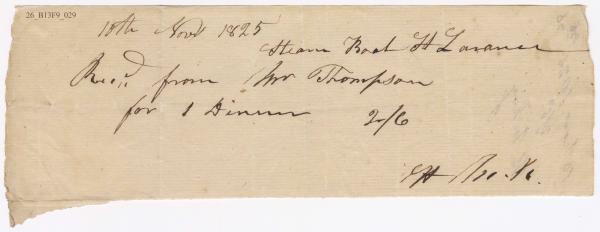 26_B13F9_029
10th Novr 1825
Steam Boat St Lawrence
Recd. from Mr Thompson
for 1 Dinner 2/6